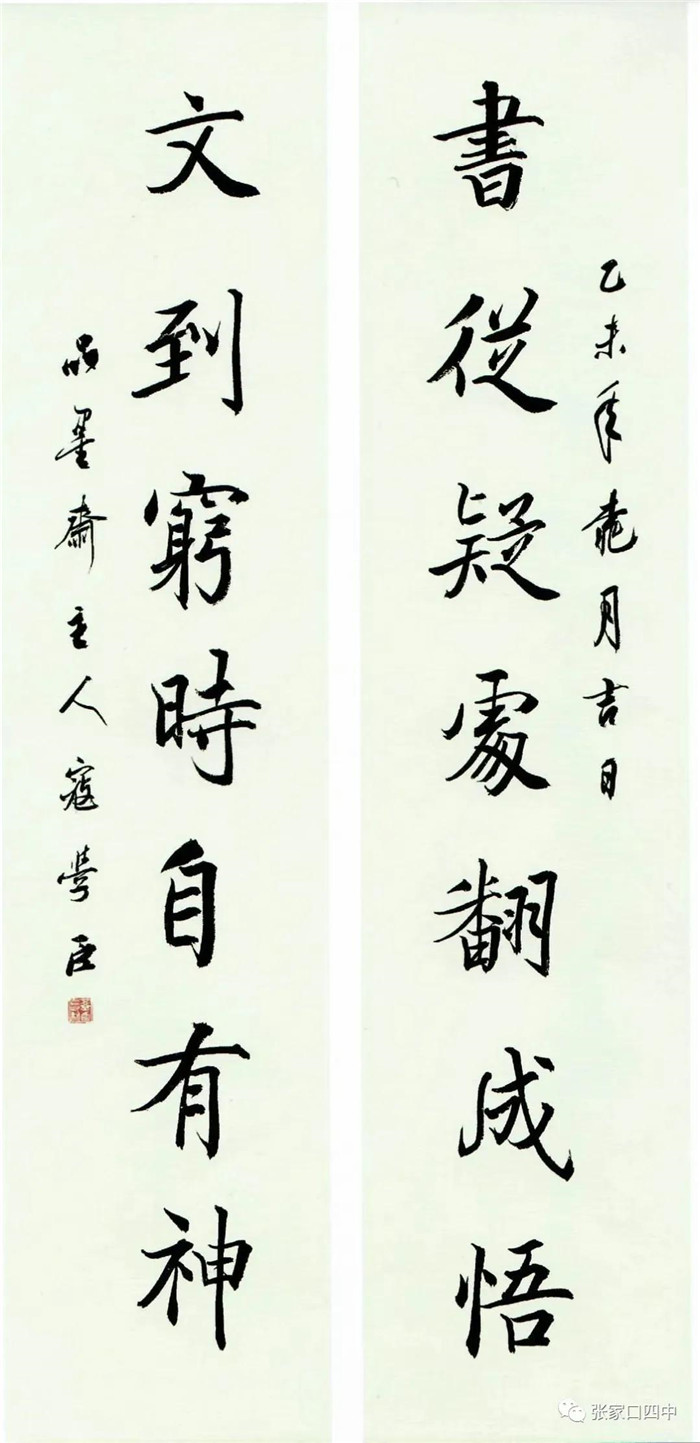 乙未年龍月吉日
書從疑處翻成悟
文到窮時自有神
墨齋主人寇學臣
张家口四中